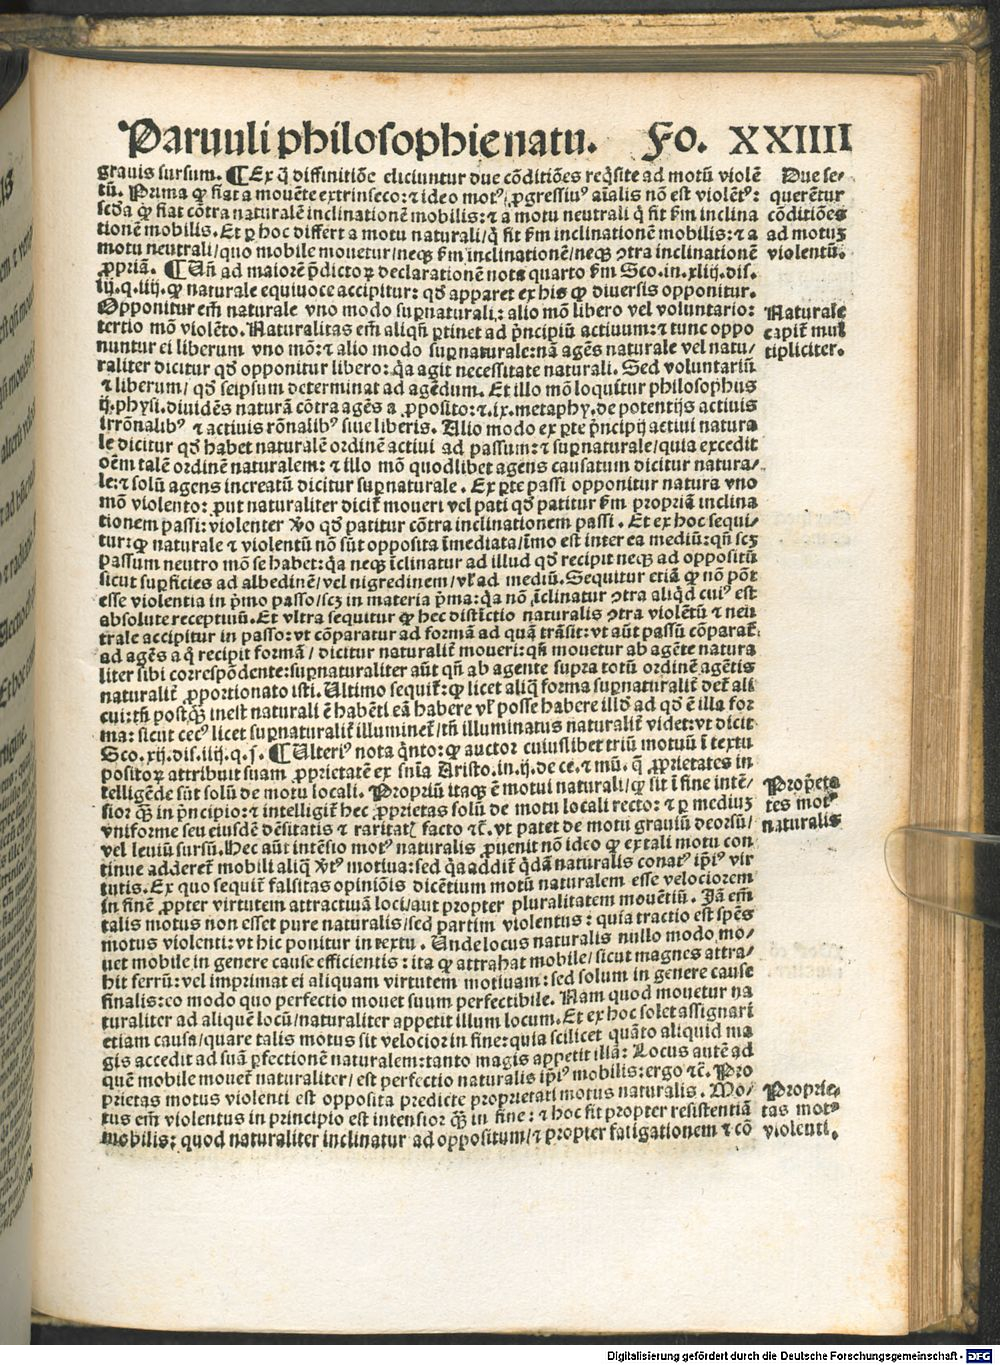 Paruuli philosophie natu. Fo. XXIIII
grauis sursum. ¶ Ex q̄ diffinitiōe eliciuntur due cōditiōes reqͥsite ad motū violē
tū. Prima ꝙ fiat a mouēte extrinseco: ⁊ ideo motꝰ ꝓgressiuꝰ aīalis nō est violētꝰ:
scd̄a ꝙ fiat cōtra naturalē inclinationē mobilis: ⁊ a motu neutrali q̄ fit ẜm inclina
tionē mobilis. Et ꝑ hoc differt a motu naturali/ q̄ fit ẜm inclinationē mobilis: ⁊ a
motu neutrali/ quo mobile mouetur/ neqꝫ ẜm inclinationē/ neqꝫ ꝯtra inclinationē
ꝓpriā. ¶ Un̄ ad maiorē p̄dictoꝝ declarationē nota quarto ẜm Sco. in. xliij. dis.
iij. q. iiij. ꝙ naturale equiuoce accipitur: qd̄ apparet ex his ꝙ diuersis opponitur.
Opponitur em̄ naturale vno modo suꝑnaturali: alio mō libero vel voluntario:
tertio mō violēto. Naturalitas em̄ aliqn̄ ꝑtinet ad pͥncipiū actiuum: ⁊ tunc oppo
nuntur ei liberum vno mō: ⁊ alio modo suꝑnaturale: nā agēs naturale vel natu/
raliter dicitur qd̄ opponitur libero: qͥa agit necessitate naturali. Sed voluntariū
⁊ liberum/ qd̄ seipsum determinat ad agēdum. Et illo mō loquitur philosophus
ij. physi. diuidēs naturā cōtra agēs a ꝓposito: ⁊. ix. metaphy. de potentijs actiuis
irrōnalibꝰ ⁊ actiuis rōnalibꝰ siue liberis. Alio modo ex ꝑte pͥncipij actiui natura
le dicitur qd̄ habet naturalē ordinē actiui ad passum: ⁊ suꝑnaturale/ quia excedit
oēm talē ordinē naturalem: ⁊ illo mō quodlibet agens causatum dicitur natura/
le: ⁊ solū agens increatū dicitur suꝑnaturale. Ex ꝑte passi opponitur natura vno
mō violento: ꝓut naturaliter dicit̄ moueri vel pati qd̄ patitur ẜm propriā inclina
tionem passi: violenter ꝟo qd̄ patitur cōtra inclinationem passi. Et ex hoc sequi/
tur: ꝙ naturale ⁊ violentū nō sūt opposita īmediata/ īmo est inter ea mediū: qn̄ scꝫ
passum neutro mō se habet: qͥa neqꝫ īclinatur ad illud qd̄ recipit neqꝫ ad oppositū
sicut suꝑficies ad albedinē/ vel nigredinem/ vl̓ ad mediū. Sequitur etiā ꝙ nō pōt
esse violentia in pͥmo passo/ scꝫ in materia pͥma: qͥa nō īclinatur ꝯtra aliqͥd cuiꝰ est
absolute receptiuū. Et vltra sequitur ꝙ hec distīctio naturalis ꝯtra violētū ⁊ neu
trale accipitur in passo: vt cōparatur ad formā ad quā trāsit: vt aūt passū cōparat̄
ad agēs a q̄ recipit formā/ dicitur naturalit̄ moueri: qn̄ mouetur ab agēte natura
liter sibi correspōdente: suꝑnaturaliter aūt qn̄ ab agente supra totū ordinē agētis
naturalit̄ ꝓportionato isti. Ultimo sequit̄: ꝙ licet aliq̄ forma suꝑnaturalit̄ det̄ ali
cui: tn̄ postqꝫ̄ inest naturali ē habēti eā habere vl̓ posse habere illd̄ ad qd̄ ē illa for
ma: sicut cecꝰ licet suꝑnaturalit̄ illuminet̄/ tn̄ illuminatus naturalit̄ videt: vt dicit
Sco. xij. dis. iiij. q. j. ¶ Ulteriꝰ nota qͥnto: ꝙ auctor cuiuslibet triū motuū ī textu
positoꝝ attribuit suam ꝓprietatē ex snīa Aristo. in. ij. de ce. ⁊ mū. q̄ ꝓprietates in
telligēde sūt solū de motu locali. Propriū itaqꝫ ē motui naturali/ ꝙ sit ī fine intē/
sior qꝫ̄ in pͥncipio: ⁊ intelligit̄ hec ꝓprietas solū de motu locali recto: ⁊ ꝑ mediuꝫ
vniforme seu eiusdē dēsitatis ⁊ raritatꝭ facto ⁊c̄. vt patet de motu grauiū deorsū/
vel leuiū sursū. Hec aūt intēsio motꝰ naturalis ꝓuenit nō ideo ꝙ ex tali motu con
tinue adderet̄ mobili aliq̄ ꝟtꝰ motiua: sed qͥa addit̄ qͥdā naturalis conatꝰ ipͥiꝰ vir
tutis. Ex quo sequit̄ falsitas opiniōis dicētium motū naturalem esse velociorem
in finē ꝓpter virtutem attractiuā loci/ aut propter pluralitatem mouētiū. Iā em̄
talis motus non esset pure naturalis/ sed partim violentus: quia tractio est spēs
motus violenti: vt hic ponitur in textu. Unde locus naturalis nullo modo mo/
uet mobile in genere cause efficientis: ita ꝙ attrahat mobile/ sicut magnes attra/
hit ferrū: vel imprimat ei aliquam virtutem motiuam: sed solum in genere cause
finalis: eo modo quo perfectio mouet suum perfectibile. Nam quod mouetur na
turaliter ad aliquē locū/ naturaliter appetit illum locum. Et ex hoc solet assignari
etiam causa/ quare talis motus sit velocior in fine: quia scilicet quāto aliquid ma
gis accedit ad suā ꝑfectionē naturalem: tanto magis appetit illā: Locus autē ad
quē mobile mouet̄ naturaliter/ est perfectio naturalis ipͥiꝰ mobilis: ergo ⁊c̄. Pro
prietas motus violenti est opposita predicte proprietati motus naturalis. Mo/
tus em̄ violentus in principio est intensior qꝫ̄ in fine: ⁊ hoc fit propter resistentiā
mobilis: quod naturaliter inclinatur ad oppositum/ ⁊ propter fatigationem ⁊ cō
Due se-
querētur
cōditiōes
ad motuꝫ
violentū.
Naturale
capit̄ mul
tipliciter.
Propͥeta
tes motꝰ
naturalis
Proprie-
tas motꝰ
violenti.
Digitalisierung gefördert durch die Deutsche Forschungsgemeinschaft - DFG